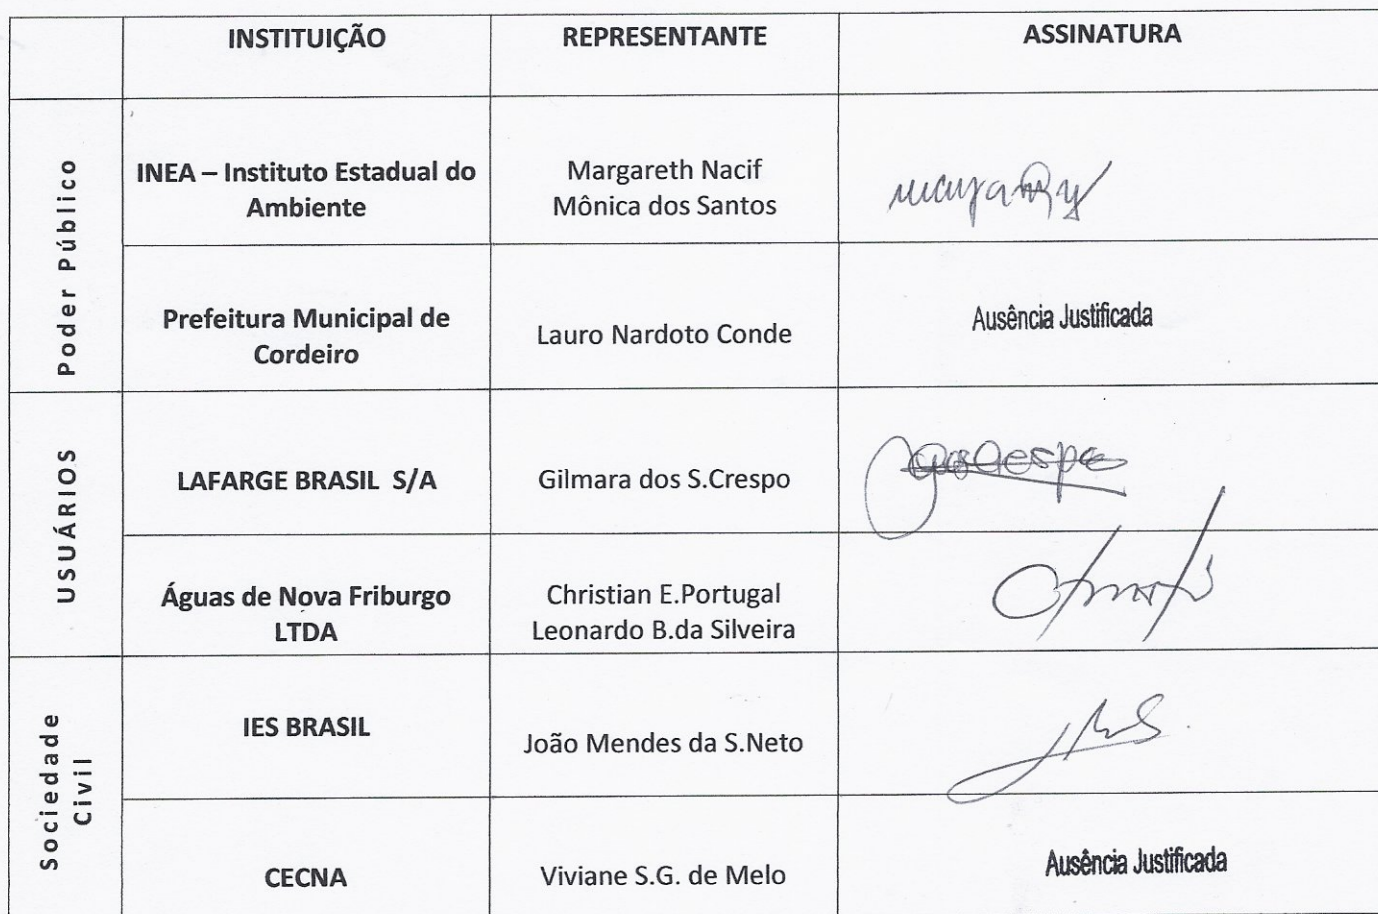 INSTITUIÇÃO REPRESENTANTE ASSINATURA
Poder Público
INEA – Instituto Estadual do
Ambiente
Margareth Nacif
Mônica dos Santos
Prefeitura Municipal de
Cordeiro
Lauro Nardoto Conde
Ausência Justificada
USUÁRIOS
LAFARGE BRASIL S/A
Gilmara dos S.Crespo
Águas de Nova Friburgo
LTDA
Christian E.Portugal
Leonardo B.da Silveira
Sociedade
Civil
IES BRASIL
João Mendes da S.Neto
CECNA
Viviane S.G. de Melo
Ausência Justificada